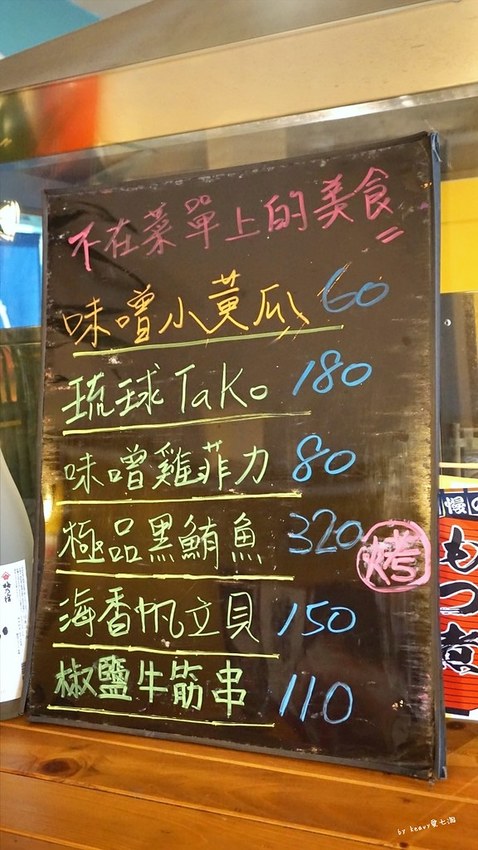 不在菜單上的美食
味噌小黃瓜 60
琉球Tako 180
味噌雞菲力 80
極品黑鮪魚 320 烤
海香帆立貝 150
椒鹽牛筋串 110
慢の
もつ煮